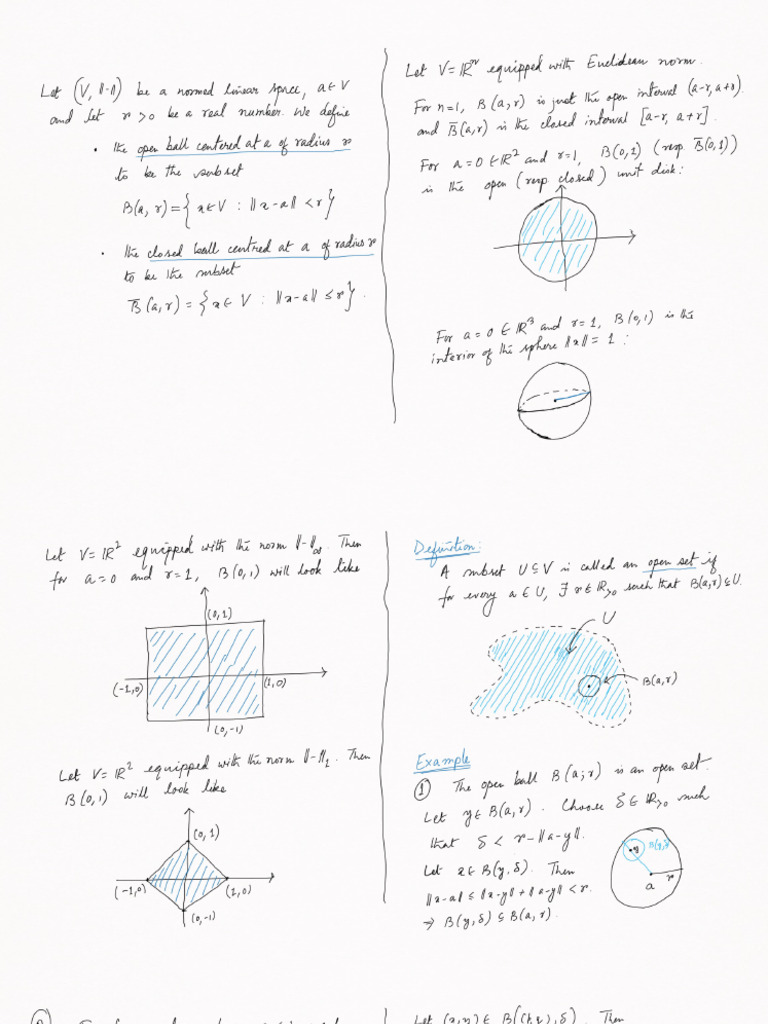 Let (V, ‖·‖) be a normed linear space, a ∈ V
and let r > 0 be a real number. We define
• the open ball centered at a of radius r
to be the subset
B(a, r) = { x ∈ V : ‖x-a‖ < r }
• the closed ball centred at a of radius r
to be the subset
B̄(a, r) = { x ∈ V : ‖x-a‖ ≤ r }.
Let V = ℝⁿ equipped with Euclidean norm.
For n=1, B(a, r) is just the open interval (a-r, a+r).
and B̄(a, r) is the closed interval [a-r, a+r].
For a = 0 ∈ ℝ² and r=1, B(0,1) (resp B̄(0,1))
is the open (resp closed) unit disk:
For a = 0 ∈ ℝ³ and r=1, B(0,1) is the
interior of the sphere ‖x‖ = 1 :
Let V = ℝ² equipped with the norm ‖-‖∞. Then
for a=0 and r=1, B(0,1) will look like
(0,1)
(-1,0)
(1,0)
(0,-1)
Let V = ℝ² equipped with the norm ‖-‖₁. Then
B(0,1) will look like
(0,1)
(-1,0)
(1,0)
(0,-1)
Definition:
A subset U ⊆ V is called an open set if
for every a ∈ U, ∃ r ∈ ℝ>0 such that B(a,r) ⊆ U.
U
B(a,r)
Example
① The open ball B(a;r) is an open set.
Let y ∈ B(a,r). Choose δ ∈ ℝ>0 such
that δ < r - ‖a-y‖.
Let x ∈ B(y, δ). Then
‖x-a‖ ≤ ‖x-y‖ + ‖a-y‖ < r.
⇒ B(y, δ) ⊆ B(a, r).
y
a
r
Let (x,y) ∈ B((p,q), δ). Then